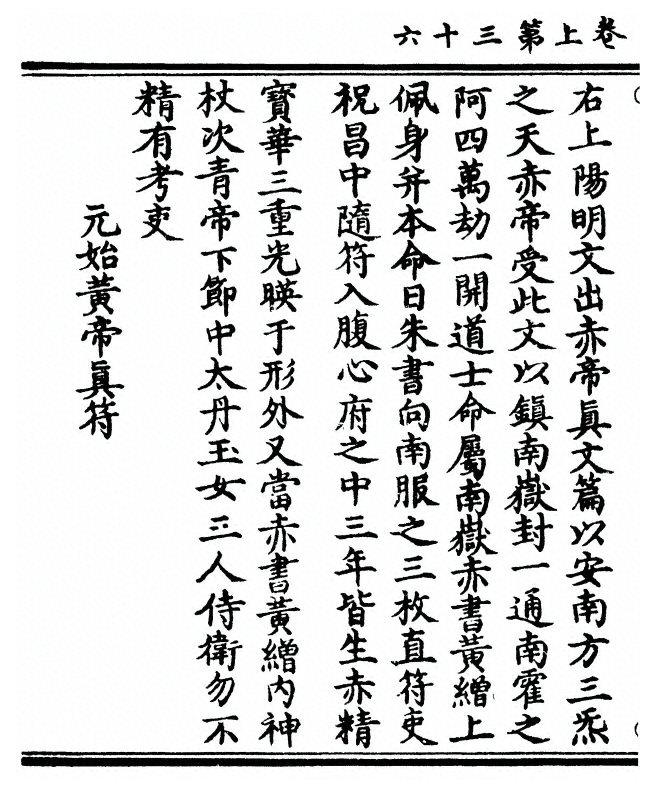 卷上第三十六
右上陽明文出赤帝眞文篇以安南方三炁
之天赤帝受此文以鎭南嶽封一通南霍之
阿四萬劫一開道士命屬南嶽赤書黃繒上
佩身并本命日朱書向南服之三枚直符吏
祝昌中隨符入腹心府之中三年皆生赤精
寶華三重光暎于形外又當赤書黃繒內神
杖次青帝下節中太丹玉女三人侍衛勿不
精有考吏
元始黃帝眞符